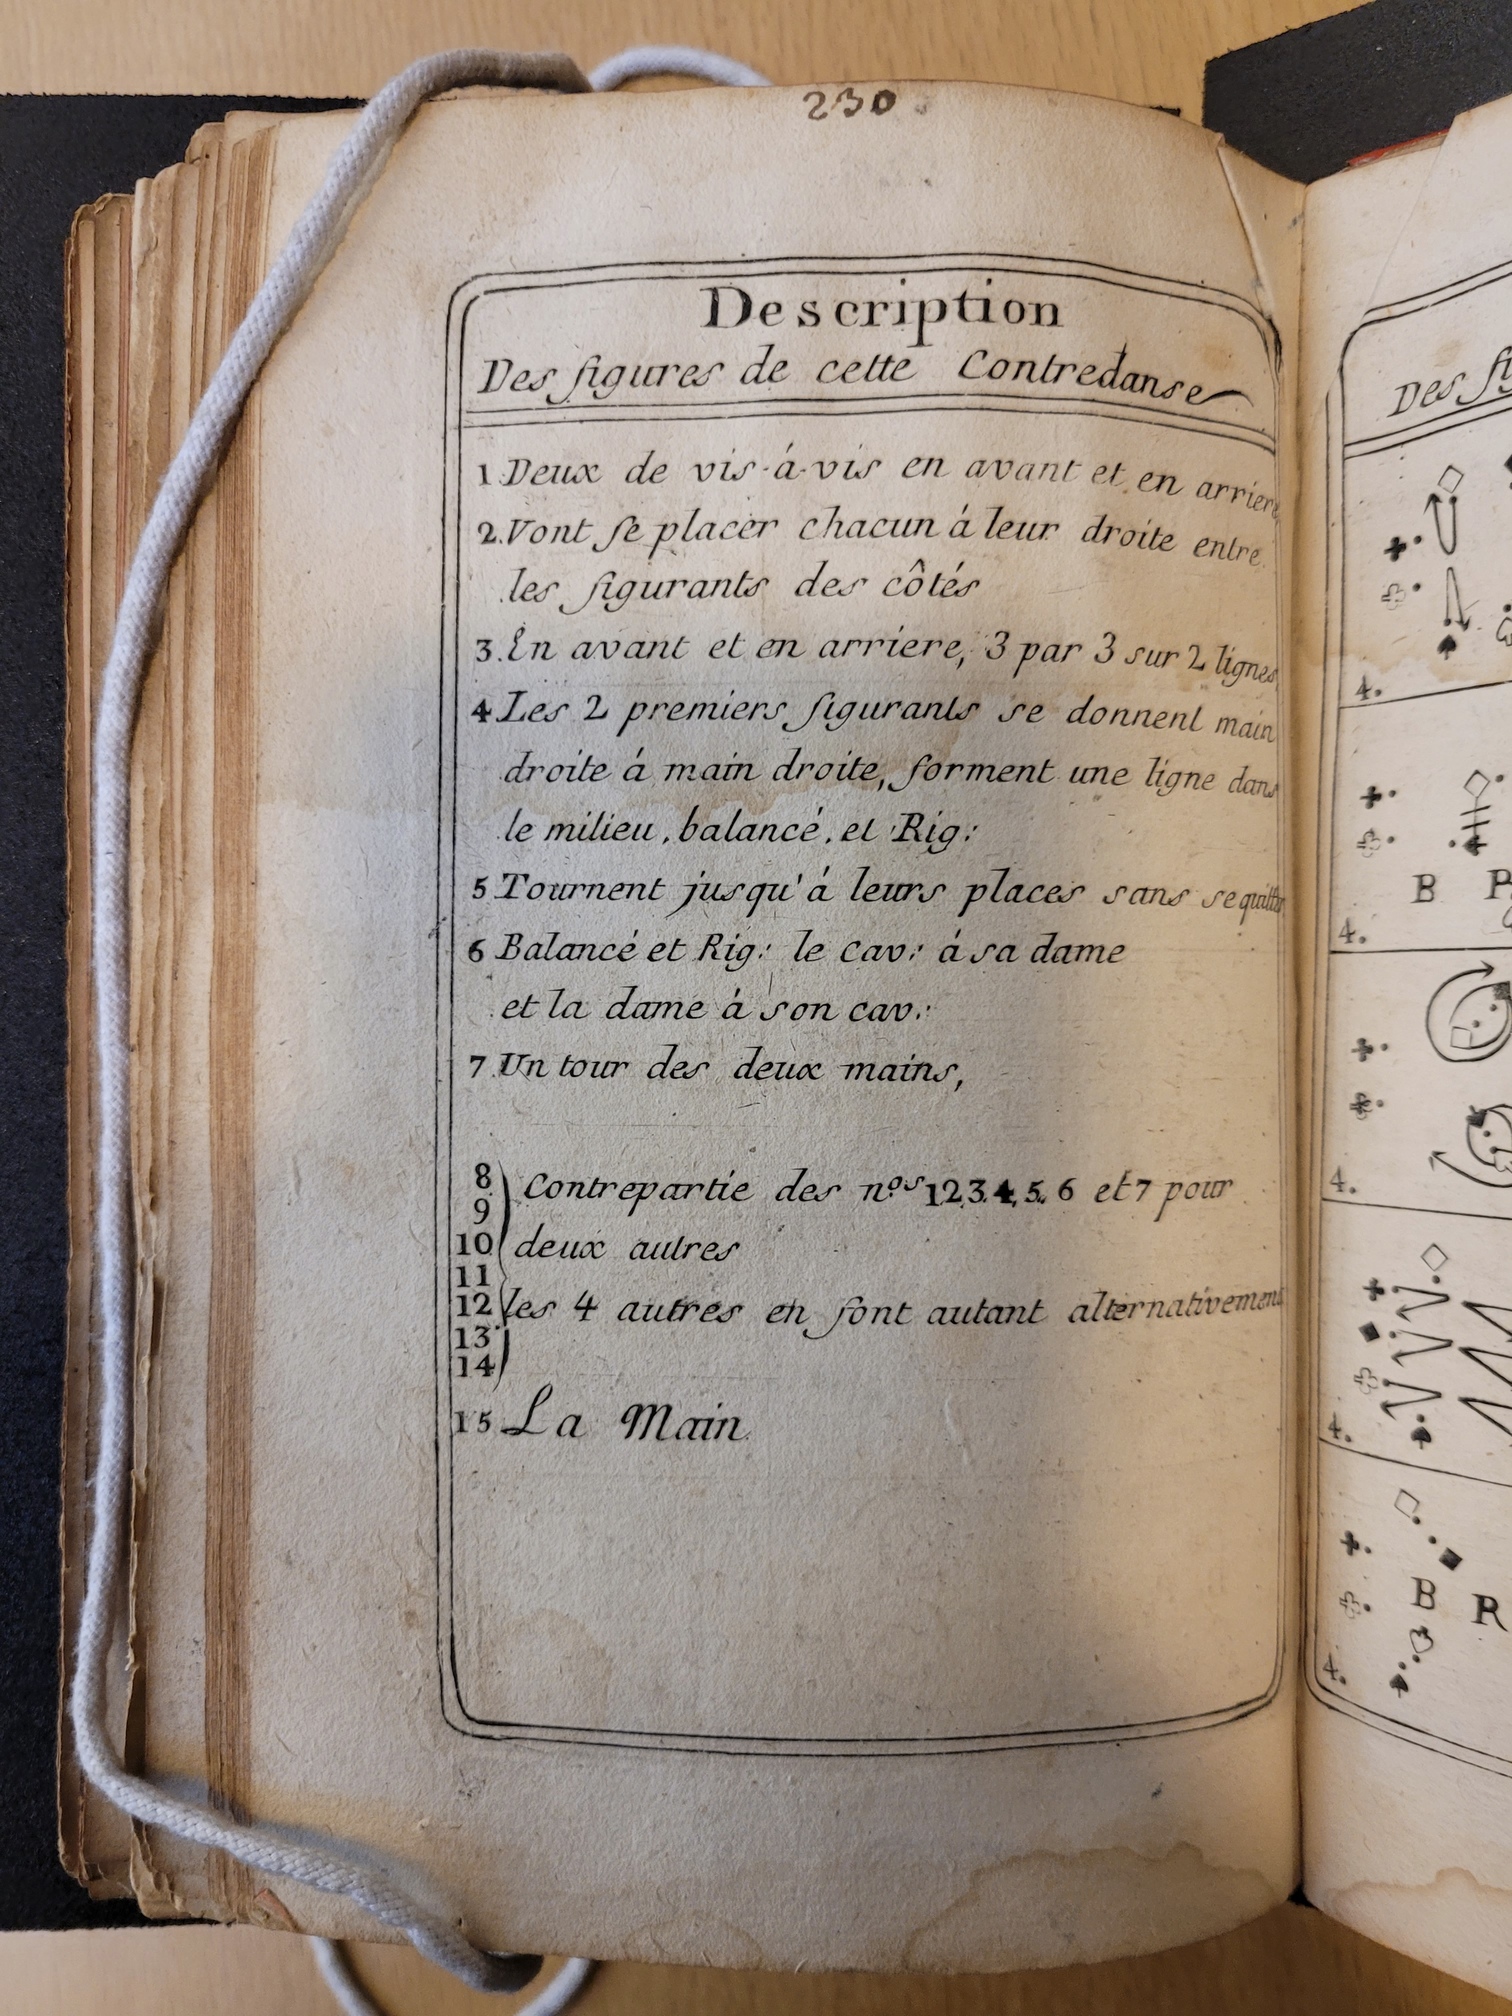 230
Description
Des figures de cette Contredanse
1 Deux de vis-á-vis en avant et en arriere
2. Vont se placer chacun á leur droite entre
les figurants des côtés
3. En avant et en arriere, 3 par 3 sur 2 lignes
4 Les 2 premiers figurants se donnent main
droite á main droite, forment une ligne dans
le milieu, balancé, et Rig:
5 Tournent jusqu'á leurs places sans se quitter
6 Balancé et Rig: le cav: á sa dame
et la dame á son cav:
7 Un tour des deux mains,
8
9
10
11
12
13
14
Contrepartie des n.os 1 2 3. 4. 5. 6 et 7 pour
deux autres
les 4 autres en font autant alternativement
15 La Main
Des
4.
B
4.
4.
4.
B R
4.